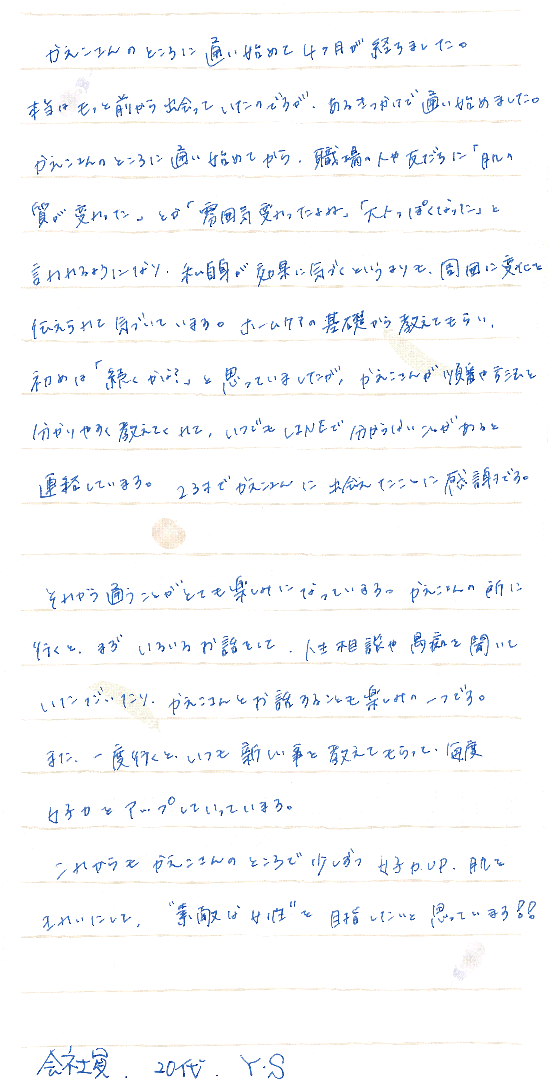 かえこさんのところに通い始めて4ヶ月が経ちました。
本当はもっと前から出会っていたのですが、あるきっかけで通い始めました。
かえこさんのところに通い始めてから、職場の人や友だちに「肌の
質が変わった」とか「雰囲気変わったよね」「大人っぽくなった」と
言われるようになり、私自身が効果に気づくというよりも、周囲に変化を
伝えられて気づいています。ホームケアの基礎から教えてもらい、
初めは「続くかな?」と思っていましたが、かえこさんが順番や方法を
分かりやすく教えてくれて、いつでもLINEで分からないことがあると
連絡しています。23才でかえこさんに出会えたことに感謝です。
それから通うことがとても楽しみになっています。かえこさんの所に
行くと、まずいろいろお話をして、人生相談や愚痴を聞いて
いただいたり、かえこさんとお話することも楽しみの一つです。
また、一度行くと、いつも新しい事を教えてもらって、毎度
女子力をアップしていっています。
これからもかえこさんのところで少しずつ女子力UP、肌を
きれいにして、"素敵な女性"を目指したいと思っています!!
会社員、20代、Y・S